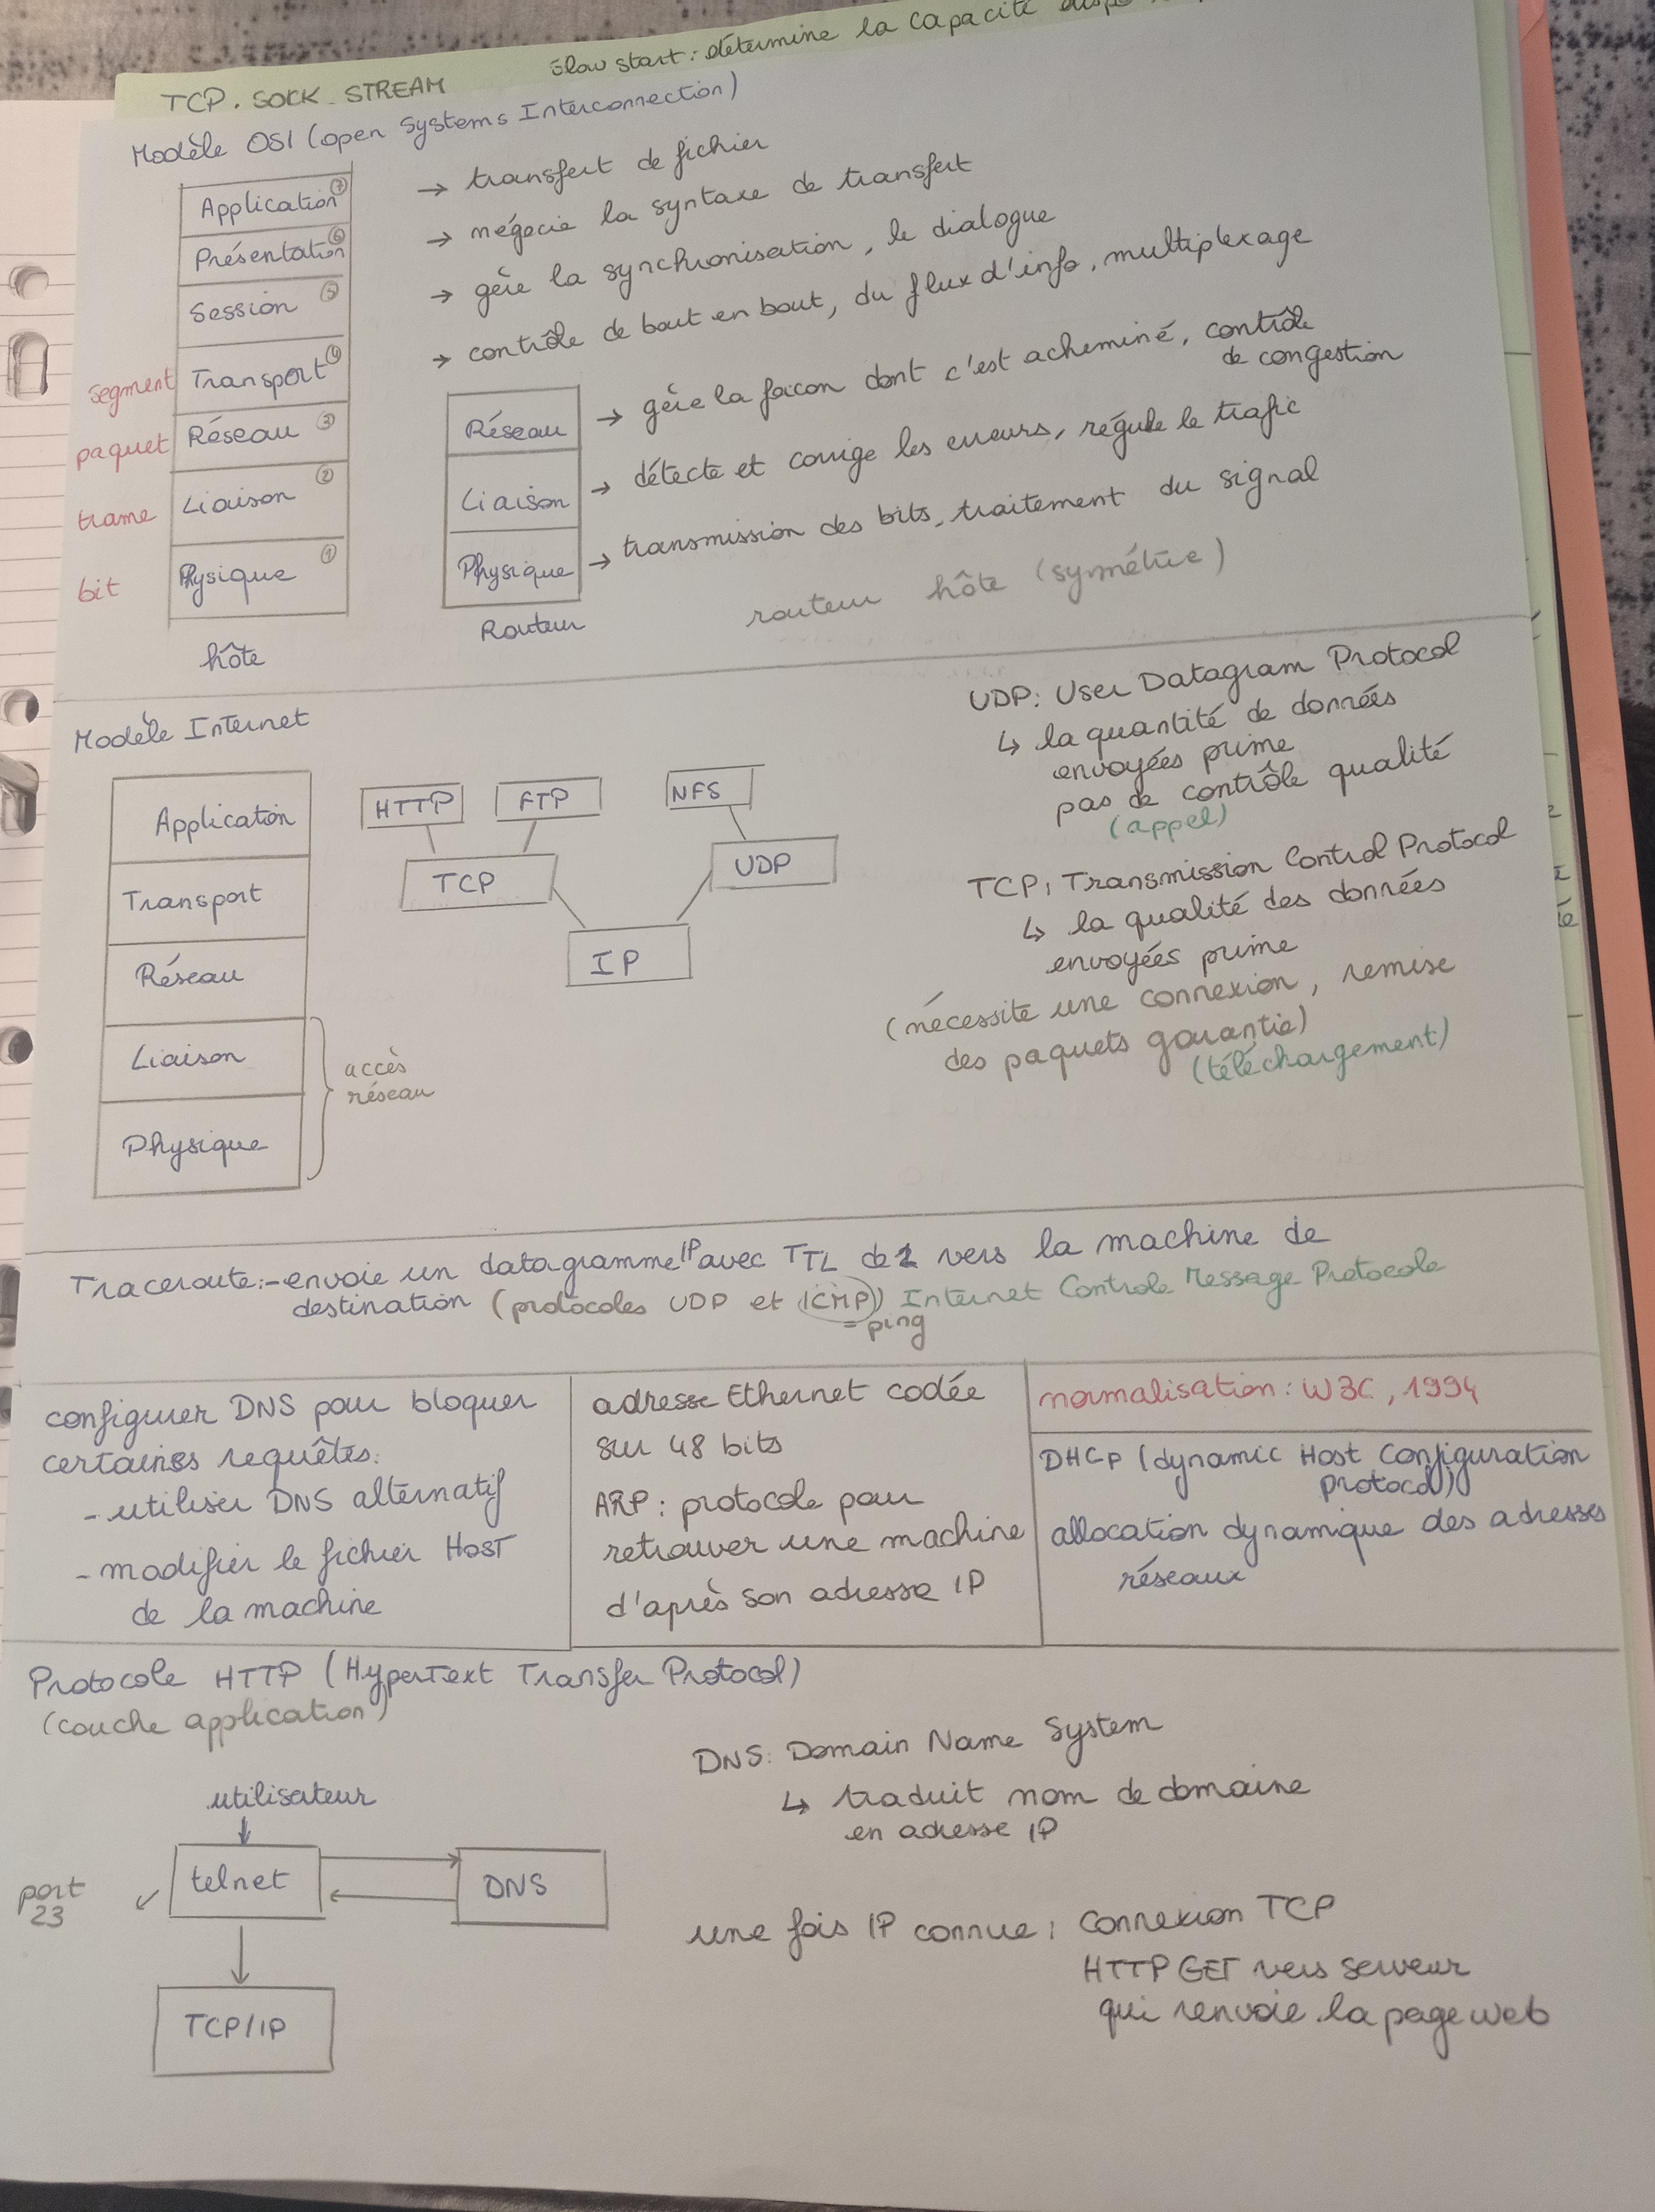 slow start: détermine la capacité
TCP. SOCK_STREAM
Modèle OSI (open Systems Interconnection)
Application ⑦ → transfert de fichier
Présentation ⑥ → négocie la syntaxe de transfert
Session ⑤ → gère la synchronisation, le dialogue
segment Transport ④ → contrôle de bout en bout, du flux d'info, multiplexage
paquet Réseau ③ Réseau → gère la façon dont c'est acheminé, contrôle
de congestion
trame Liaison ② Liaison → détecte et corrige les erreurs, régule le trafic
bit Physique ① Physique → transmission des bits, traitement du signal
hôte Routeur routeur hôte (symétrie)
Modèle Internet
Application
Transport
Réseau
Liaison
Physique
accès
réseau
HTTP FTP NFS
TCP UDP
IP
UDP: User Datagram Protocol
↳ la quantité de données
envoyées prime
pas de contrôle qualité
(appel)
TCP: Transmission Control Protocol
↳ la qualité des données
envoyées prime
(nécessite une connexion, remise
des paquets garantie)
(téléchargement)
Traceroute:-envoie un datagramme IP avec TTL de vers la machine de
destination (protocoles UDP et ICMP) Internet Controle Message Protocole
= ping
configurer DNS pour bloquer
certaines requêtes:
- utiliser DNS alternatif
- modifier le fichier HOST
de la machine
adresse Ethernet codée
sur 48 bits
ARP: protocole pour
retrouver une machine
d'après son adresse IP
normalisation: W3C, 1994
DHCP (dynamic Host Configuration
Protocol)
allocation dynamique des adresses
réseaux
Protocole HTTP (HyperText Transfer Protocol)
(couche application)
utilisateur
port
23
telnet
DNS
TCP/IP
DNS: Domain Name System
↳ traduit nom de domaine
en adresse IP
une fois IP connue: Connexion TCP
HTTP GET vers serveur
qui renvoie la page web